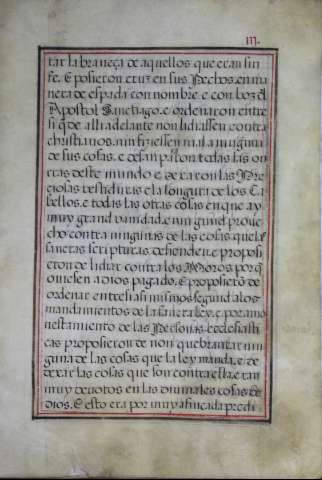 III.
tar la braveça de aquellos que eran sin
fe. E posieron cruz en sus Pechos, en ma
nera de espada con nombre e con boz dl
Apostol Sanctiago. e ordenaron entre
si q̃ de alli adelante non lidiassen contra
christianos. nin fiziessen mal a ninguno
de sus cosas. e dexan por todas las on
rras deste mundo e dexaron las Pre
ciosas vestiduras e la longura de los Ca
bellos. e todas las otras cosas en que ay
muy grand vanidad. e ningund provec
cho contra ningunas de las cosas que las
sanctas scripturas defienden. e proposi
eron de lidiar contra los Moros por q̃
oviessen a Dios pagado. E proposierõ de
ordenar entre si a si mismos segund a los
mandamientos de la sancta ley. e por amo
nestamiento de las Personas ecclesiasti
cas proposieron de non quebrantar nin
guna de las cosas que la ley manda. e de
dexar las cosas que son contra ella. e eran
muy devotos en las divinales cosas de
dios. E esto era por muy afincada predi